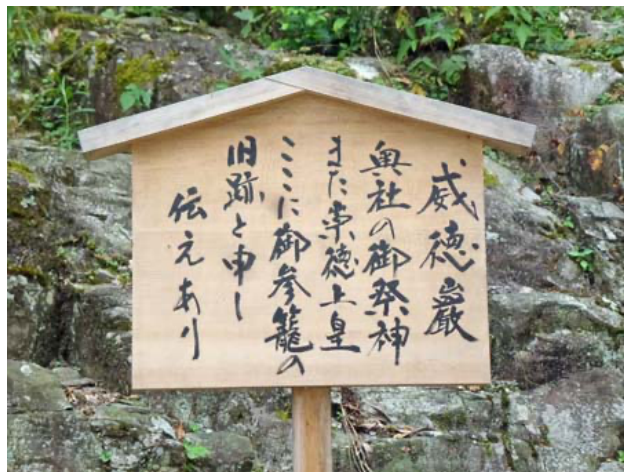 威徳巖
奥社の御祭神
また崇徳上皇
ここに御参籠の
旧跡と申し
伝えあり